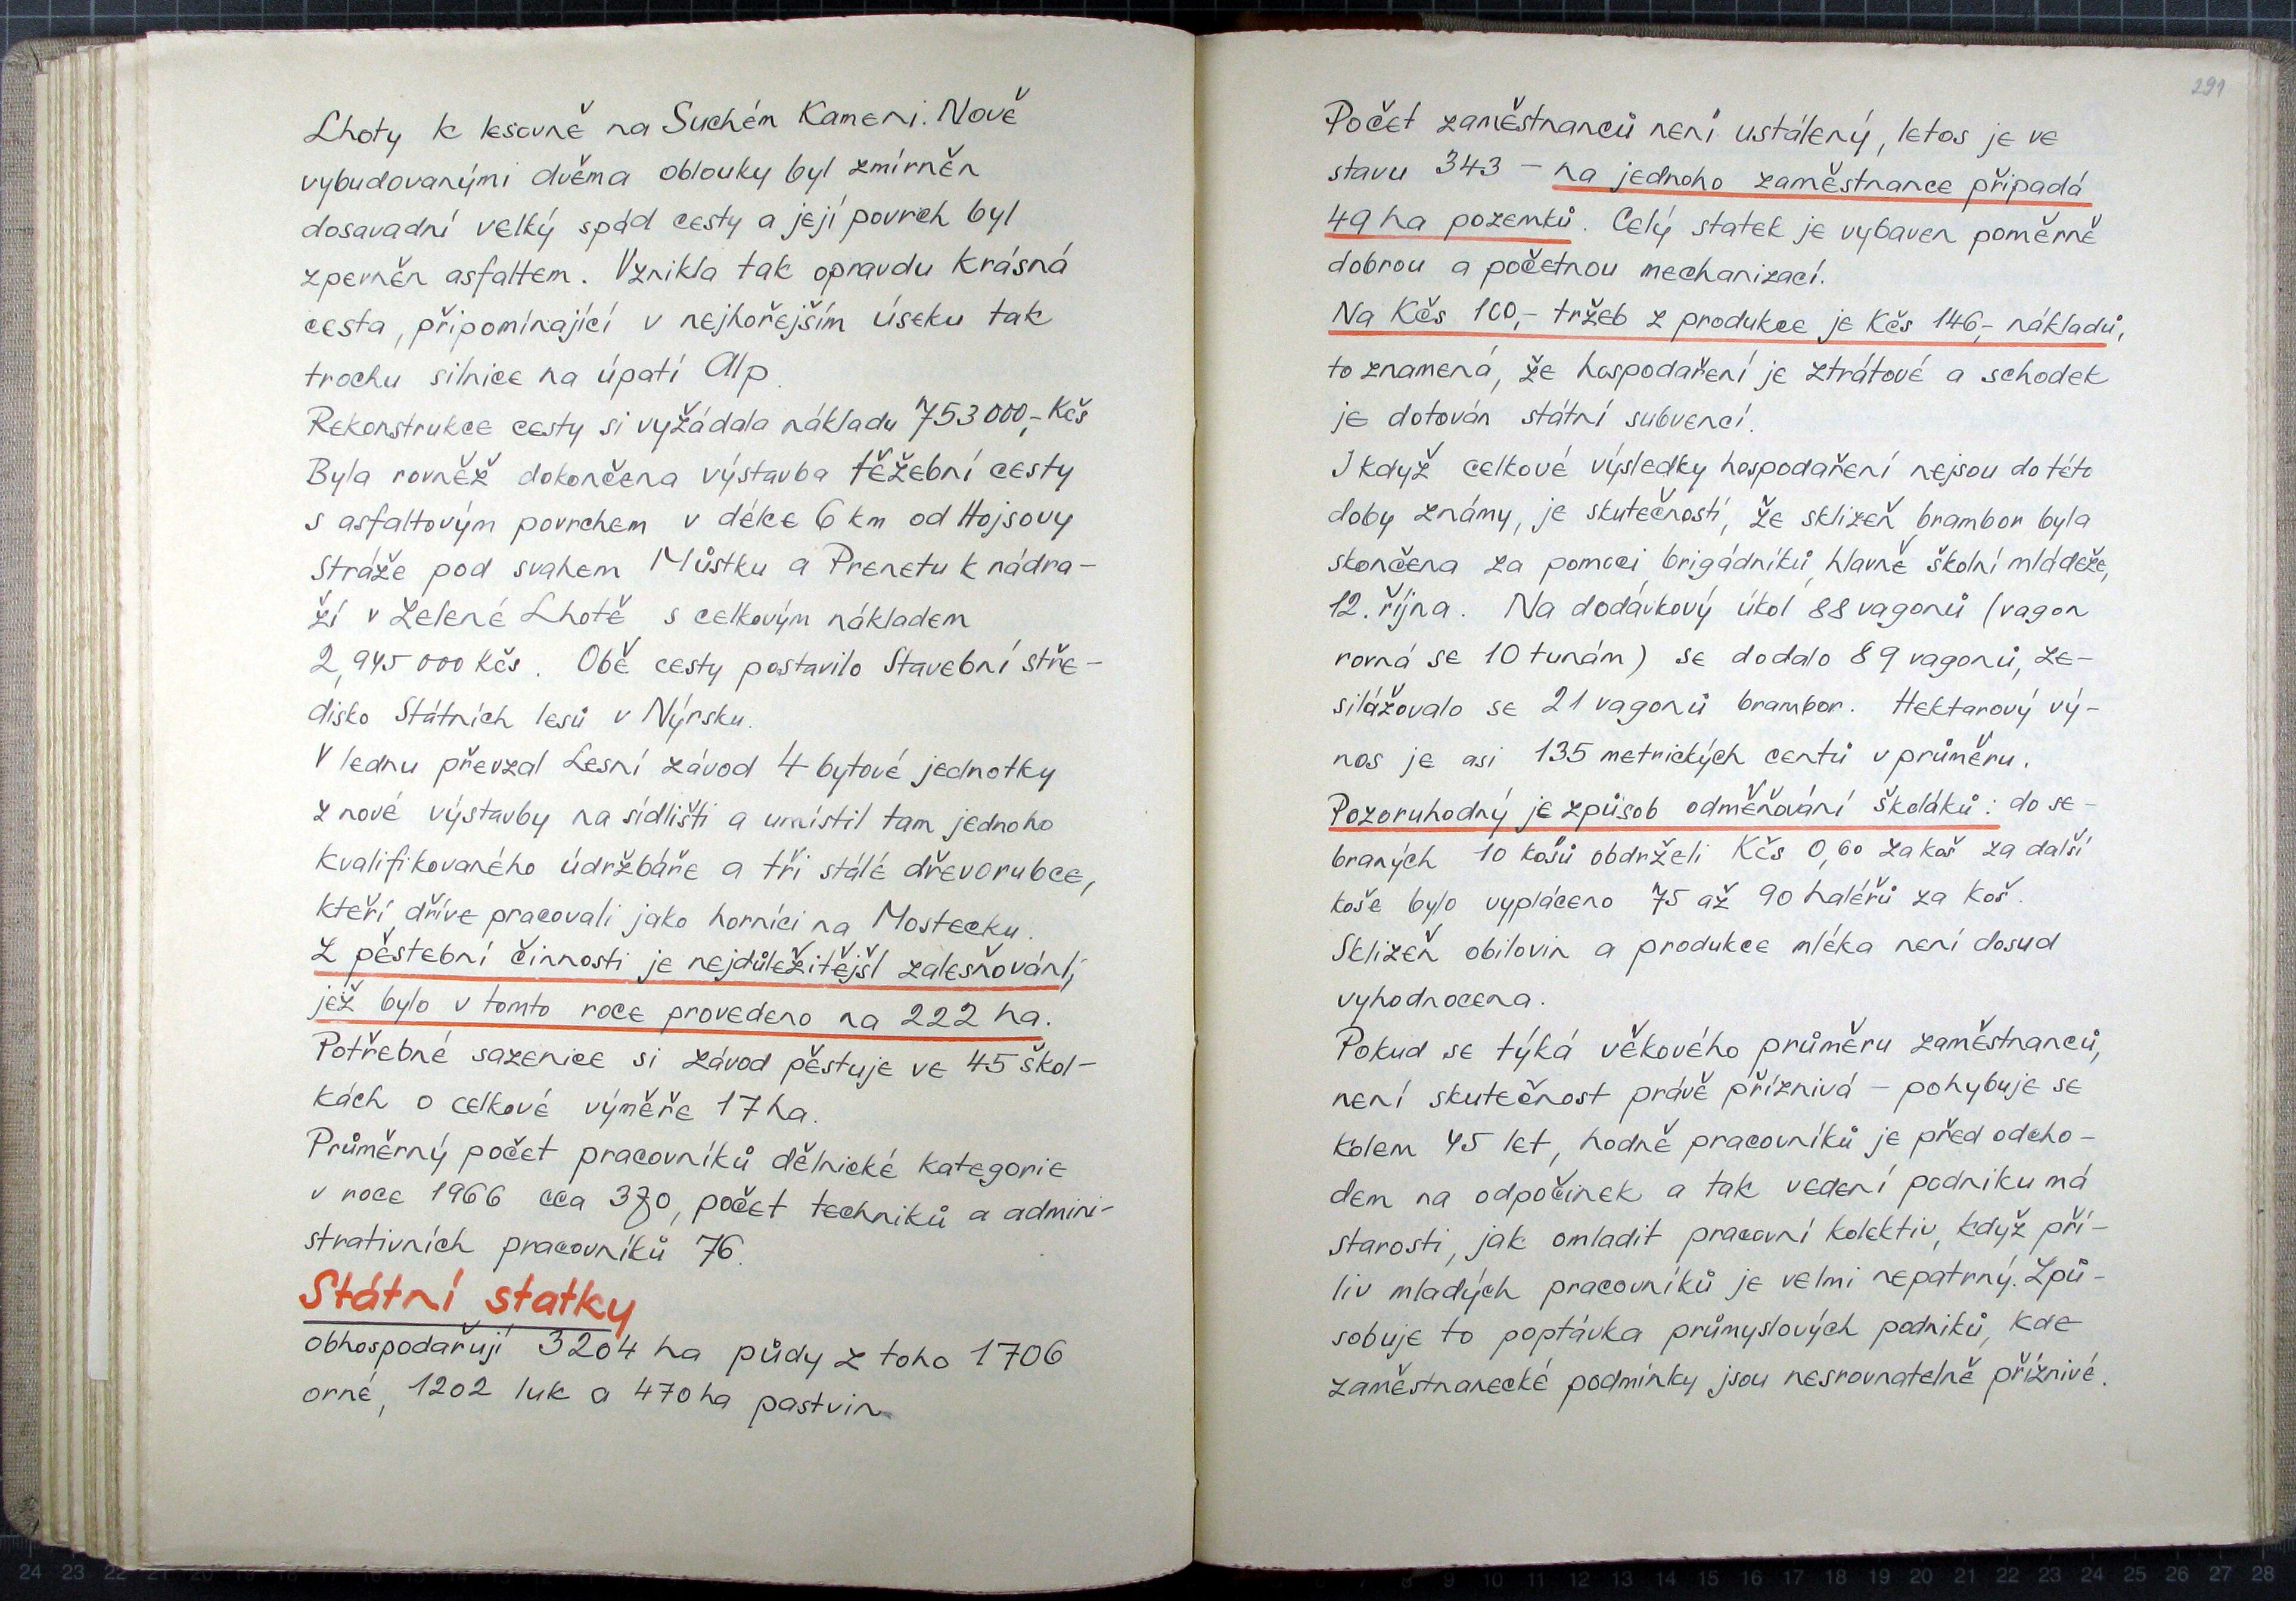 Lhoty k lesovně na Suchém Kameni. Nově
vybudovanými dvěma oblouky byl zmírněn
dosavadní velký spád cesty a její povrch byl
zpevněn asfaltem. Vznikla tak opravdu krásná
cesta, připomínající v nejhořejším úseku tak
trochu silnice na úpatí Alp.
Rekonstrukce cesty si vyžádala nákladu 753 000,- Kčs
Byla rovněž dokončena výstavba těžební cesty
s asfaltovým povrchem v délce 6 km od Hojsovy
Stráže pod svahem Můstku a Prenetu k nádra-
ží v Zelené Lhotě s celkovým nákladem
2,945 000 Kčs. Obě cesty postavilo Stavební stře-
disko Státních lesů v Nýrsku.
V lednu převzal Lesní závod 4 bytové jednotky
z nové výstavby na sídlišti a umístil tam jednoho
kvalifikovaného údržbáře a tři stálé dřevorubce,
kteří dříve pracovali jako horníci na Mostecku.
Z pěstební činnosti je nejdůležitější zalesňování,
jež bylo v tomto roce provedeno na 222 ha.
Potřebné sazenice si závod pěstuje ve 45 škol-
kách o celkové výměře 17 ha.
Průměrný počet pracovníků dělnické kategorie
v roce 1966 cca 370, počet techniků a admini-
strativních pracovníků 76.
Státní statky
obhospodařují 3204 ha půdy z toho 1706
orné, 1202 luk a 470 ha pastvin
291
Počet zaměstnanců není ustálený, letos je ve
stavu 343 – na jednoho zaměstnance připadá
49 ha pozemků. Celý statek je vybaven poměrně
dobrou a početnou mechanizací.
Na Kčs 100,- tržeb z produkce je Kčs 146,- nákladů,
to znamená, že hospodaření je ztrátové a schodek
je dotován státní subvencí.
I když celkové výsledky hospodaření nejsou do této
doby známy, je skutečností, že sklizeň brambor byla
skončena za pomoci brigádníků, hlavně školní mládeže,
12. října. Na dodávkový úkol 88 vagonů (vagon
rovná se 10 tunám) se dodalo 89 vagonů, ze-
silážovalo se 21 vagonů brambor. Hektarový vý-
nos je asi 135 metrických centů v průměru.
Pozoruhodný je způsob odměňování školáků: do se-
braných 10 košů obdrželi Kčs 0,60 za koš za další
koše bylo vypláceno 75 až 90 haléřů za koš.
Sklizeň obilovin a produkce mléka není dosud
vyhodnocena.
Pokud se týká věkového průměru zaměstnanců,
není skutečnost právě příznivá – pohybuje se
kolem 45 let, hodně pracovníků je před odcho-
dem na odpočinek a tak vedení podniku má
starosti, jak omladit pracovní kolektiv, když pří-
liv mladých pracovníků je velmi nepatrný. Způ-
sobuje to poptávka průmyslových podniků, kde
zaměstnanecké podmínky jsou nesrovnatelně příznivé.
24 23 22 21 20
8 9 10 11 12 13 14 15 16 17 18 19 20 21 22 23 24 25 26 27 28